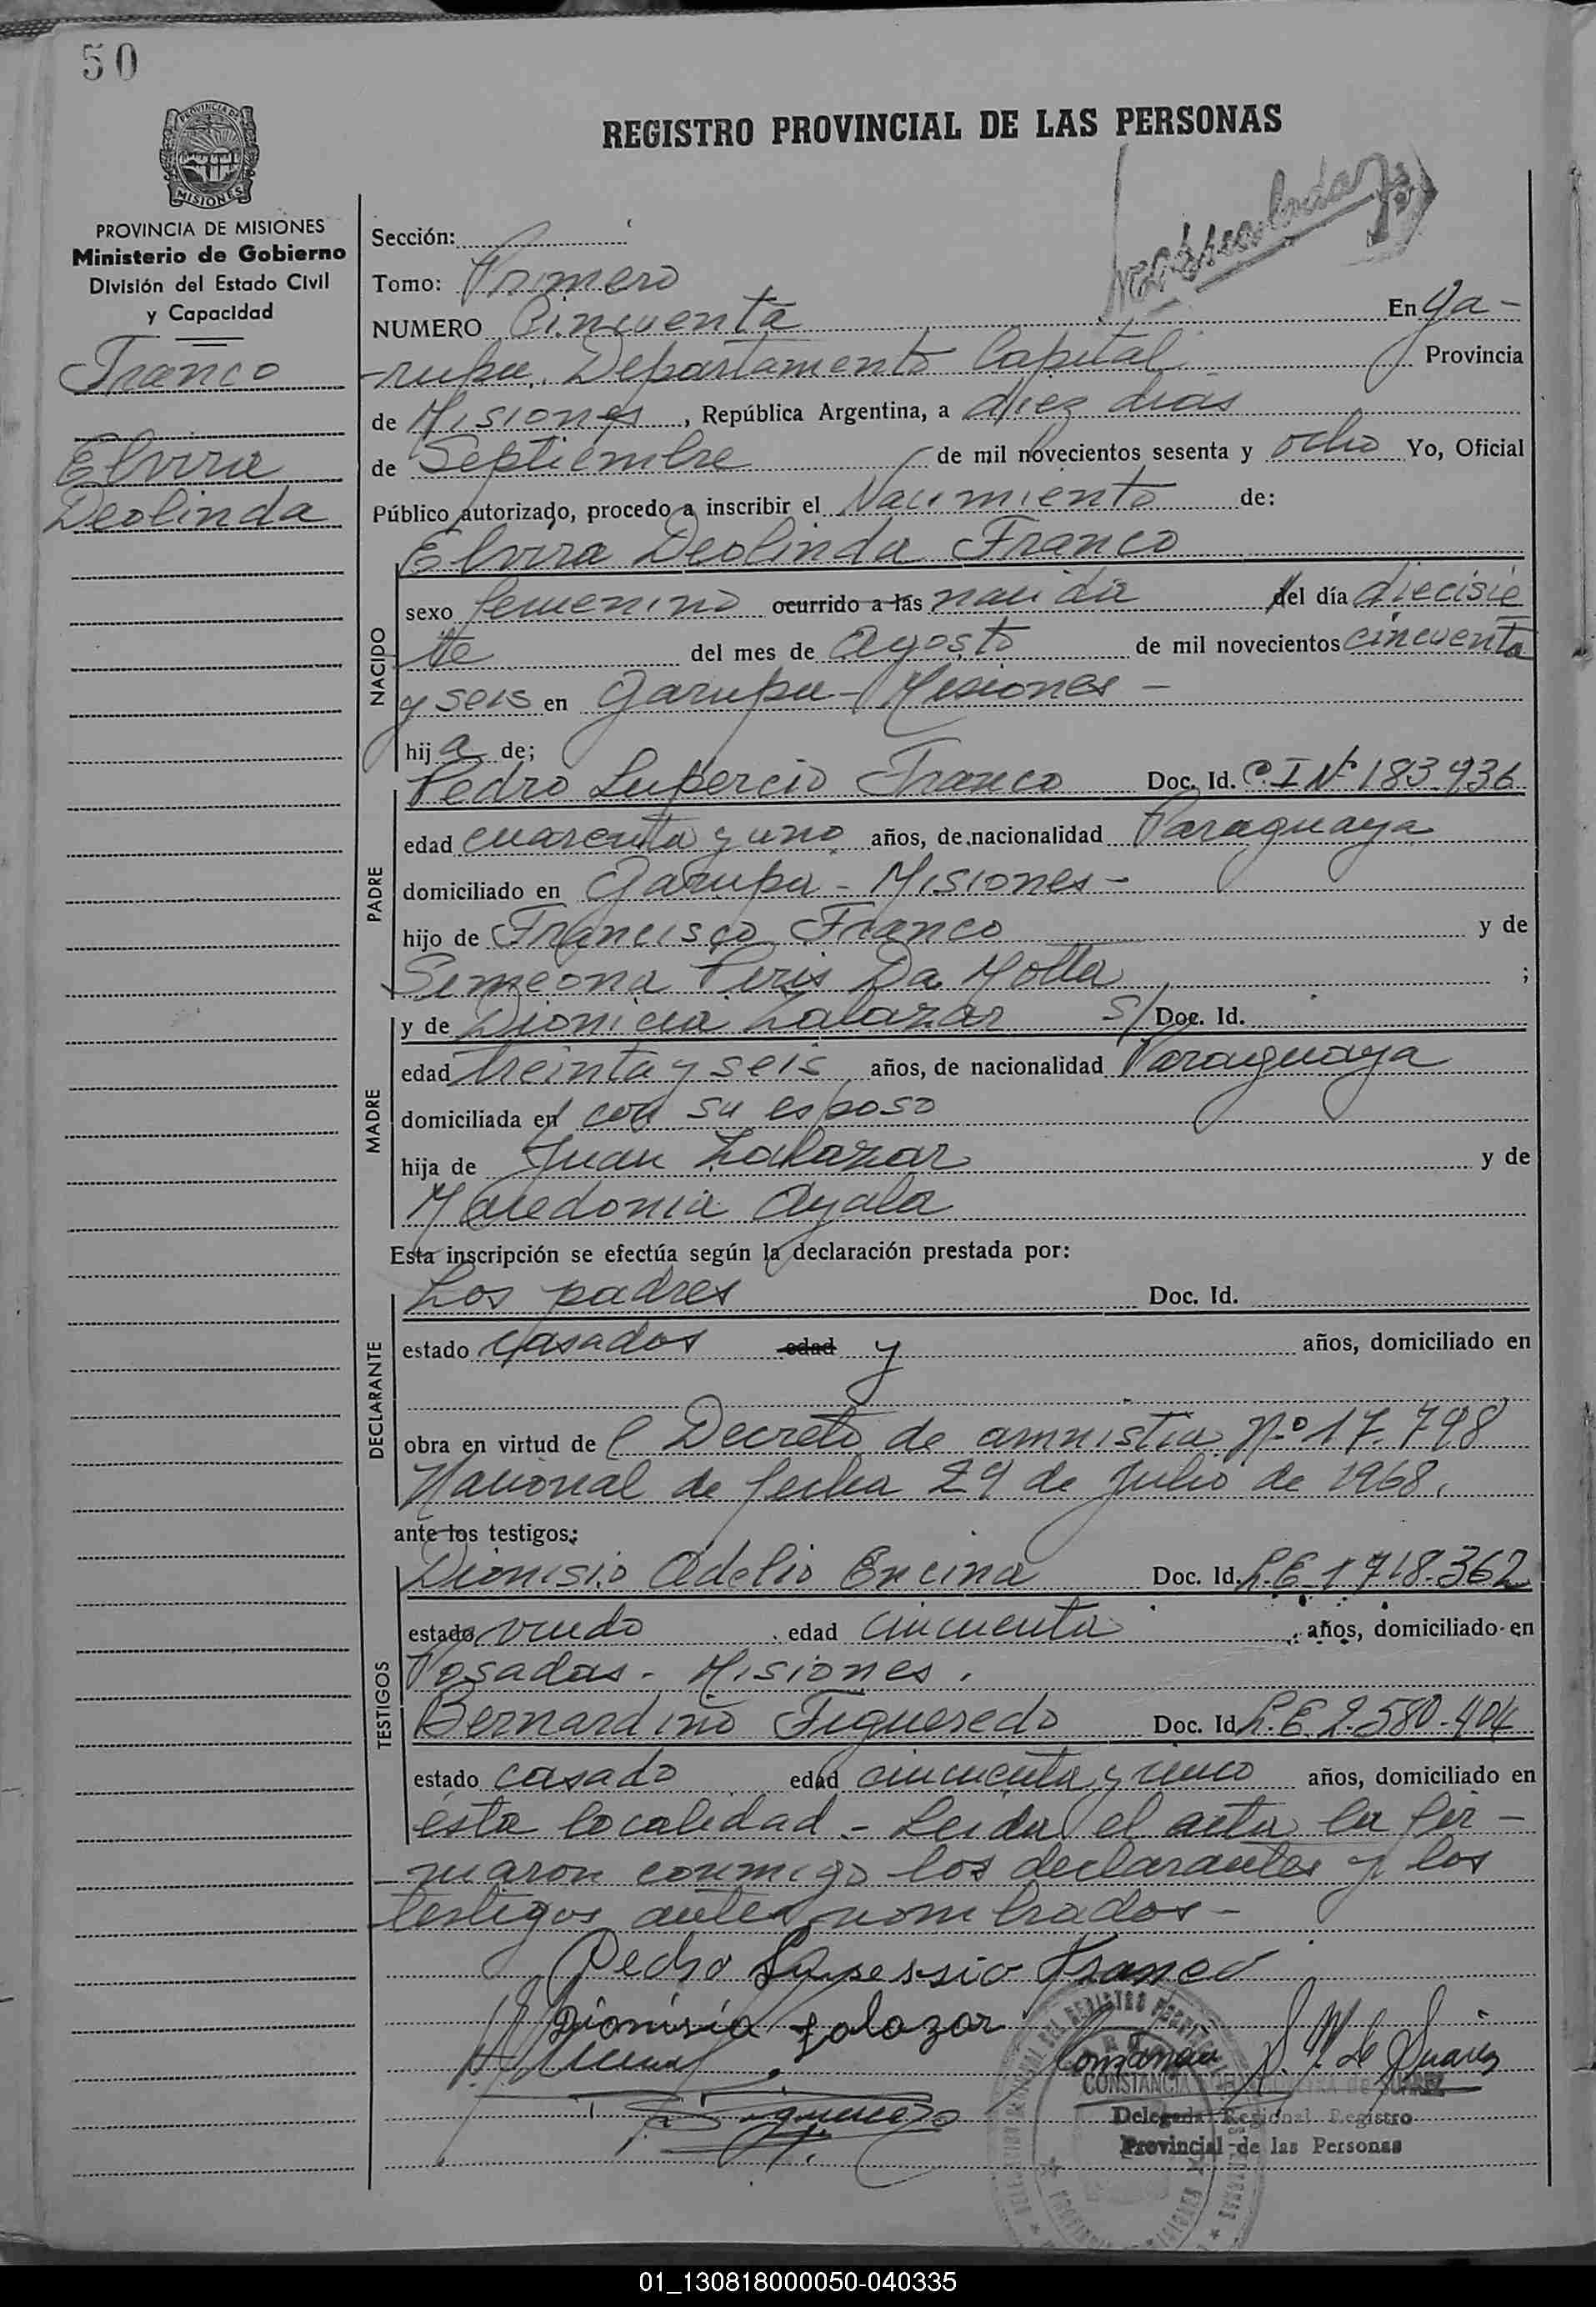 50
REGISTRO PROVINCIAL DE LAS PERSONAS
PROVINCIA DE MISIONES
PROVINCIA DE MISIONES
Ministerio de Gobierno
División del Estado Civil
y Capacidad
Franco
Elvira
Deolinda
Sección:
Tomo: Primero
NUMERO Cincuenta En Ga-
-rupa. Departamento Capital Provincia
de Misiones, República Argentina, a diez dias
de Septiembre de mil novecientos sesenta y ocho Yo, Oficial
Público autorizado, procedo a inscribir el Nacimiento de:
Elvira Deolinda Franco
NACIDO
sexo femenino ocurrido a las nacida del día diecisie
te del mes de Agosto de mil novecientos cincuenta
y seis en Garupa - Misiones -
hija de;
PADRE
Pedro Lupercio Franco Doc. Id. C.I Nº 183.936
edad cuarenta y uno años, de nacionalidad Paraguaya
domiciliado en Garupa - Misiones -
hijo de Francisco Franco y de
Simeona Peris Da Motta ;
MADRE
y de Dionicia Zalazar S/ Doc. Id.
edad treinta y seis años, de nacionalidad Paraguaya
domiciliada en con su esposo
hija de Juan Zalazar y de
Macedonia Ayala
Esta inscripción se efectúa según la declaración prestada por:
DECLARANTE
Los padres Doc. Id.
estado casados edad y años, domiciliado en
obra en virtud de l Decreto de amnistia Nº 17.798
Nacional de fecha 29 de Julio de 1968.
ante los testigos:
TESTIGOS
Dionisio Adelio Encina Doc. Id. L.E 1718.362
estado viudo edad cincuenta años, domiciliado en
Posadas - Misiones.
Bernardino Figueredo Doc. Id L.E 2.580.404
estado casado edad cincuenta y cinco años, domiciliado en
ésta localidad - Leida el acta la fir-
-maron conmigo los declarantes y los
testigos antes nombrados -
Pedro Lupessio Franco
Dionisia Zalazar
CONSTANCIA
Delegada Regional Registro
Provincial de las Personas
01_130818000050-040335